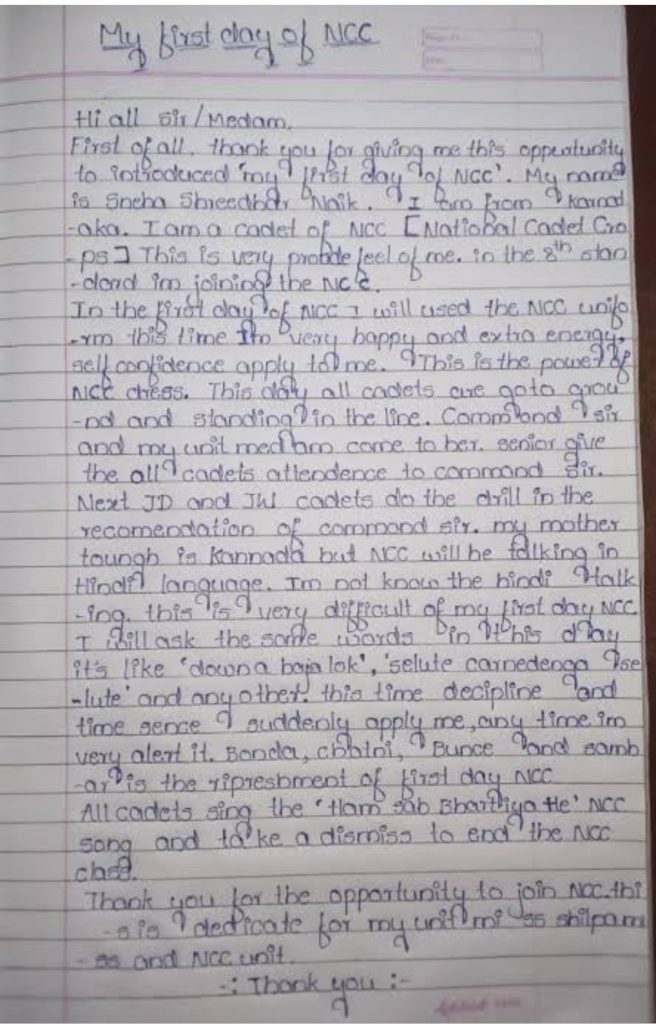 My first day of NCC
Hi all sir/Medam,
First of all, thank you for giving me this oppeutunity
to introduced 'my first day of NCC'. My name
is Sneha Shreedhar Naik. I am from karnat
-aka. I am a cadet of NCC [National Cadet Cro
-ps] This is very proude feel of me. in the 8th stan
-dond im joining the NCC.
In the first day of NCC I will used the NCC unifo
-rm this time Im very happy and extra energy,
self confidence apply to me. This is the power of
NCC dress. This day all cadets are goto grou
-nd and standing in the line. Command sir
and my unit medam come to her. senior give
the all cadets attendence to command sir.
Next JD and JW cadets do the drill in the
recomendation of command sir. my mother
toungh is Kannada but NCC will be talking in
Hindi language. Im not know the hindi talk
-ing. this is very difficult of my first day NCC
I will ask the some words in this day
it's like 'downa baja lok', 'selute carnedenga se
-lute' and any other. this time decipline and
time sence suddenly apply me, any time im
very alert it. Bonda, chatni, Bunce and samb
-ar is the ripreshment of first day NCC
All cadets sing the 'Ham sab Bhartiya He' NCC
song and take a dismiss to end the NCC
class.
Thank you for the opportunity to join NCC. thi
-s is dedicate for my unit mi ss shilpa mi
-ss and NCC unit.
-: Thank you :-